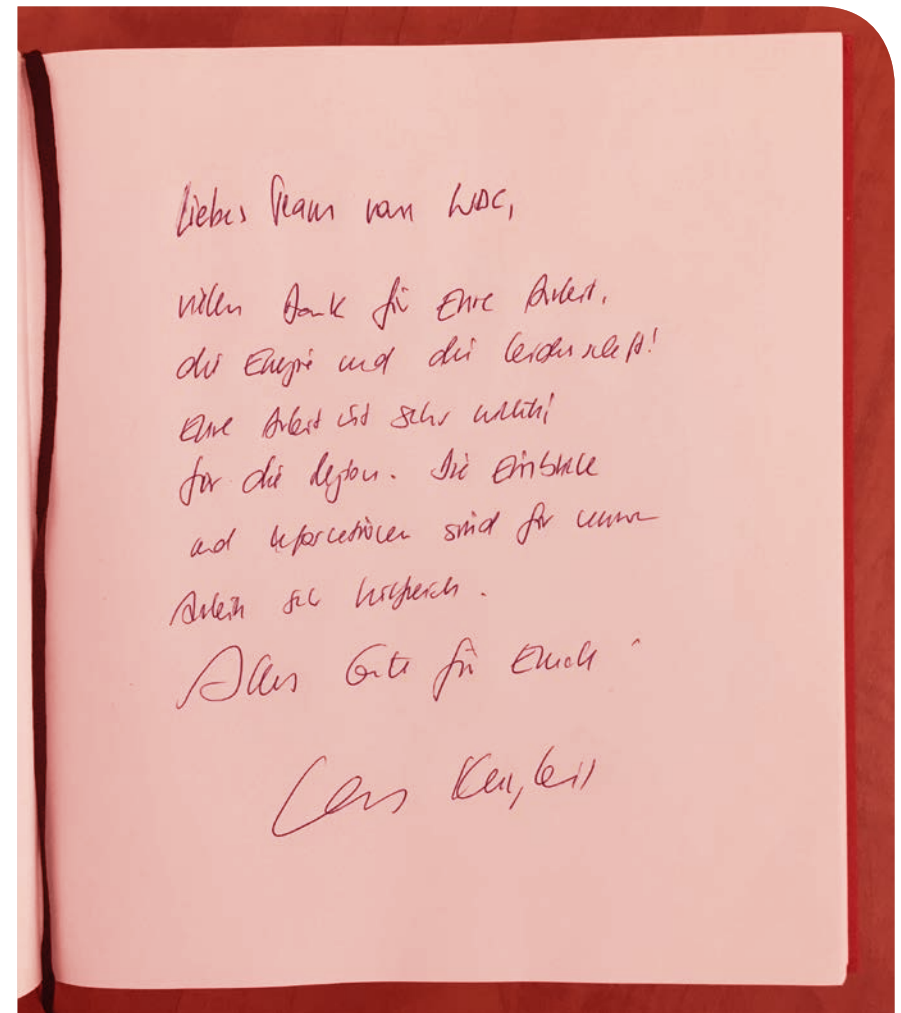 Liebes Team vom WBC,
vielen Dank für Eure Arbeit,
die Energie und die Leidenschaft!
Eure Arbeit ist sehr wichtig
für die Region. Die Einblicke
und Informationen sind für unsere
Arbeit sehr hilfreich.
Alles Gute für Euch!